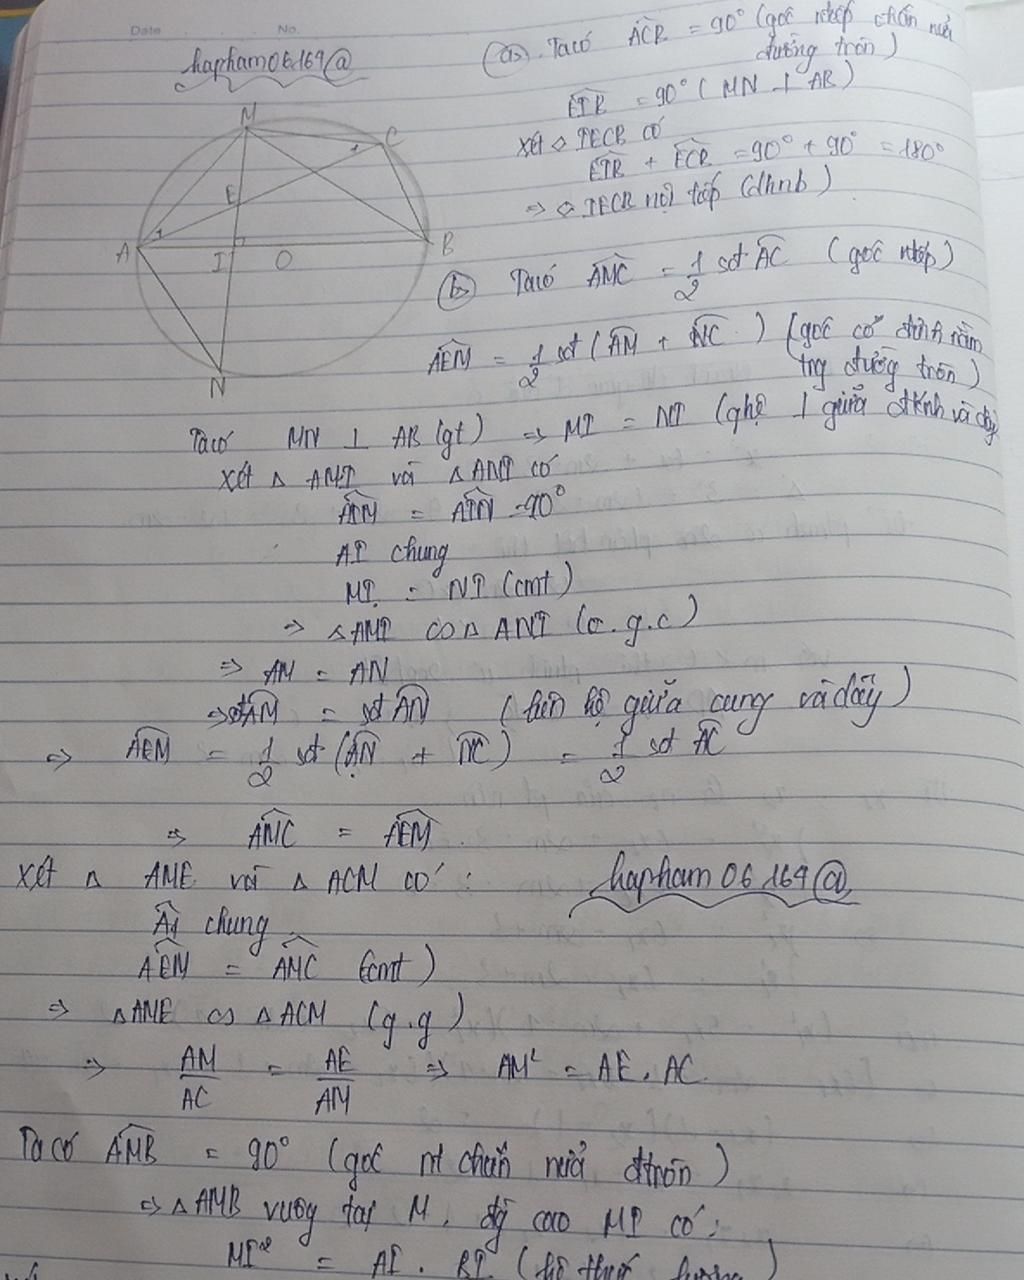 Date
No.
hapham06169@
M
C
1
E
A
1
I
O
B
N
(a). Ta có ACB = 90° (góc ntiếp chắn nửa
đường tròn)
EIB = 90° (MN ⊥ AB)
xét ◇ IECB có
EIB + ECB = 90° + 90° = 180°
=> ◇ IECB nội tiếp (dhnb)
(b) Ta có AMC = 1/2 sđ AC (góc ntiếp)
AEM = 1/2 sđ (AM + NC) (góc có đỉnh nằm
trg đường tròn)
Ta có MN ⊥ AB (gt) => MI = NI (qhệ ⊥ giữa đkính và dây
Xét △ AMI và △ ANI có
AIM = AIN = 90°
AI chung
MI = NI (cmt)
=> △AMI ∽ △ANI (c.g.c)
=> AM = AN
=> sđ AM = sđ AN (liên hệ giữa cung và dây)
=> AEM = 1/2 sđ (AN + NC) = 1/2 sđ AC
=> AMC = AEM
xét △ AME và △ ACM có :
hapham06169@
A1 chung
AEM = AMC (cmt)
=> △AME ∽ △ACM (g.g)
=> AM/AC = AE/AM => AM² = AE . AC
Ta có AMB = 90° (góc nt chắn nửa đtròn)
=> △AMB vuông tại M, đg cao MI có :
MI² = AI . BI (hệ thức lượng)